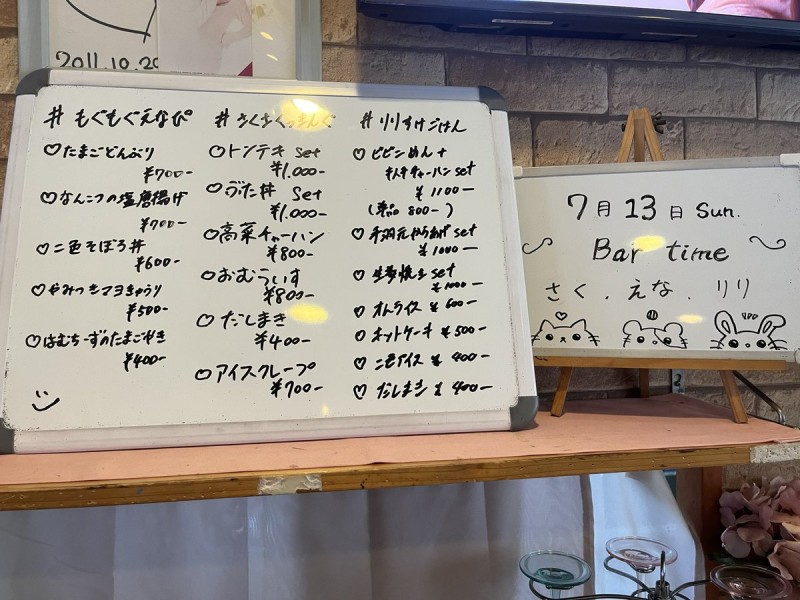 2011.10.29
# もぐもぐえなぴ
♡たまごどんぶり
¥700-
♡なんこつの塩唐揚げ
¥700-
♡二色そぼろ丼
¥600-
♡やみつきマヨきゅうり
¥500-
♡はむちーずのたまごやき
¥400-
# さくさくっきんぐ
○トンテキ set
¥1.000-
♡ぶた丼 Set
¥1.000-
○高菜チャーハン
¥800-
○おむらいす
¥800-
○だしまき
¥400-
○アイスクレープ
¥700-
# リリすけごはん
♡ ビビンめん +
キムチチャーハン set
¥1100-
(単品 800-)
♡ 手羽元からあげ set
¥1000-
♡ 生姜焼き set
¥1000-
♡ オムライス ¥600-
○ ホットケーキ ¥500-
♡ アイス ¥400-
♡ だしまき ¥400-
7月13日 Sun.
Bar time
さく . えな . リリ